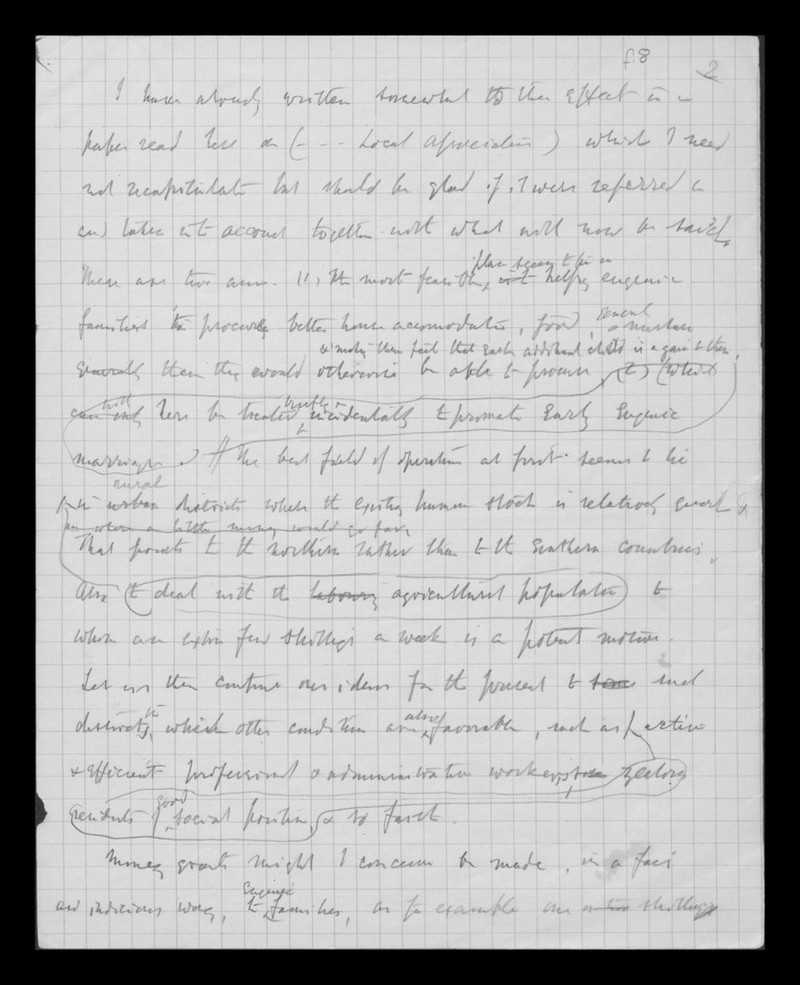 f.8
2
I have already written somewhat to this effect in a
paper read here on (- - - Local Association) which I need
not recapitulate but should be glad if it were referred to
and taken into account together with what will now be said.
There are two aims. (1) the most feasible,
place seems to be in
helping eugenic
families to procure better house accomodation, food,
general
& nurture
generally than they would otherwise be able to procure,
& making them feel that each additional child is a gain to them,
(2) (which
can only
will
here be treated
briefly &
incidentally) to promote Early Eugenic
marriages. // The best field of operation at first seems to lie
rural
in urban districts where the existing human stock is relatively good &
where a little money would go far.
That points to the northern rather than to the Southern countries.
Also to deal with the labouring agricultural population to
whom an extra few shillings a week is a potent motive.
Let us then confine our ideas for the present to some such
districts, in which other conditions are
also
favorable, such as active
& efficient professional & administrative workers, zealous
residents of
good
social position, & so forth.
Money grants might I conceive be made, in a fair
and judicious way, to
Eugenic
families, as for example one or two shillings